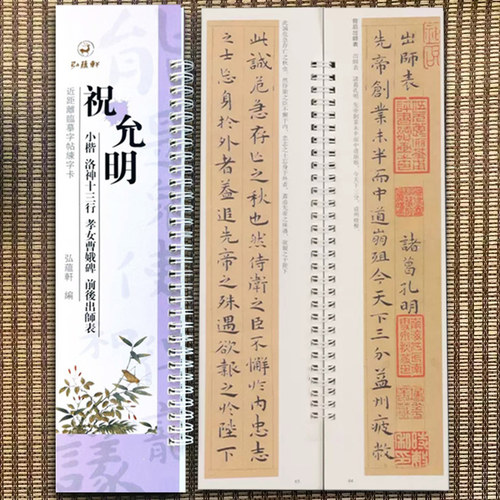 弘蘊軒
近距離臨摹字帖練字卡
祝允明
小楷 洛神十三行 孝女曹娥碑 前後出師表
弘蘊軒 編
出師表 諸葛孔明
先帝創業未半而中道崩殂今天下三分益州疲敝
此誠危急存亡之秋也然侍衛之臣不懈於内忠志
之士忘身於外者蓋追先帝之殊遇欲報之於陛下